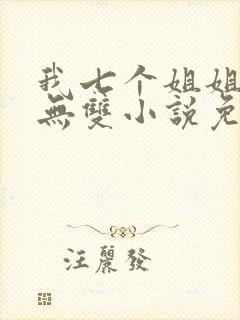 我七个姐姐
無雙小說免
汪麗發